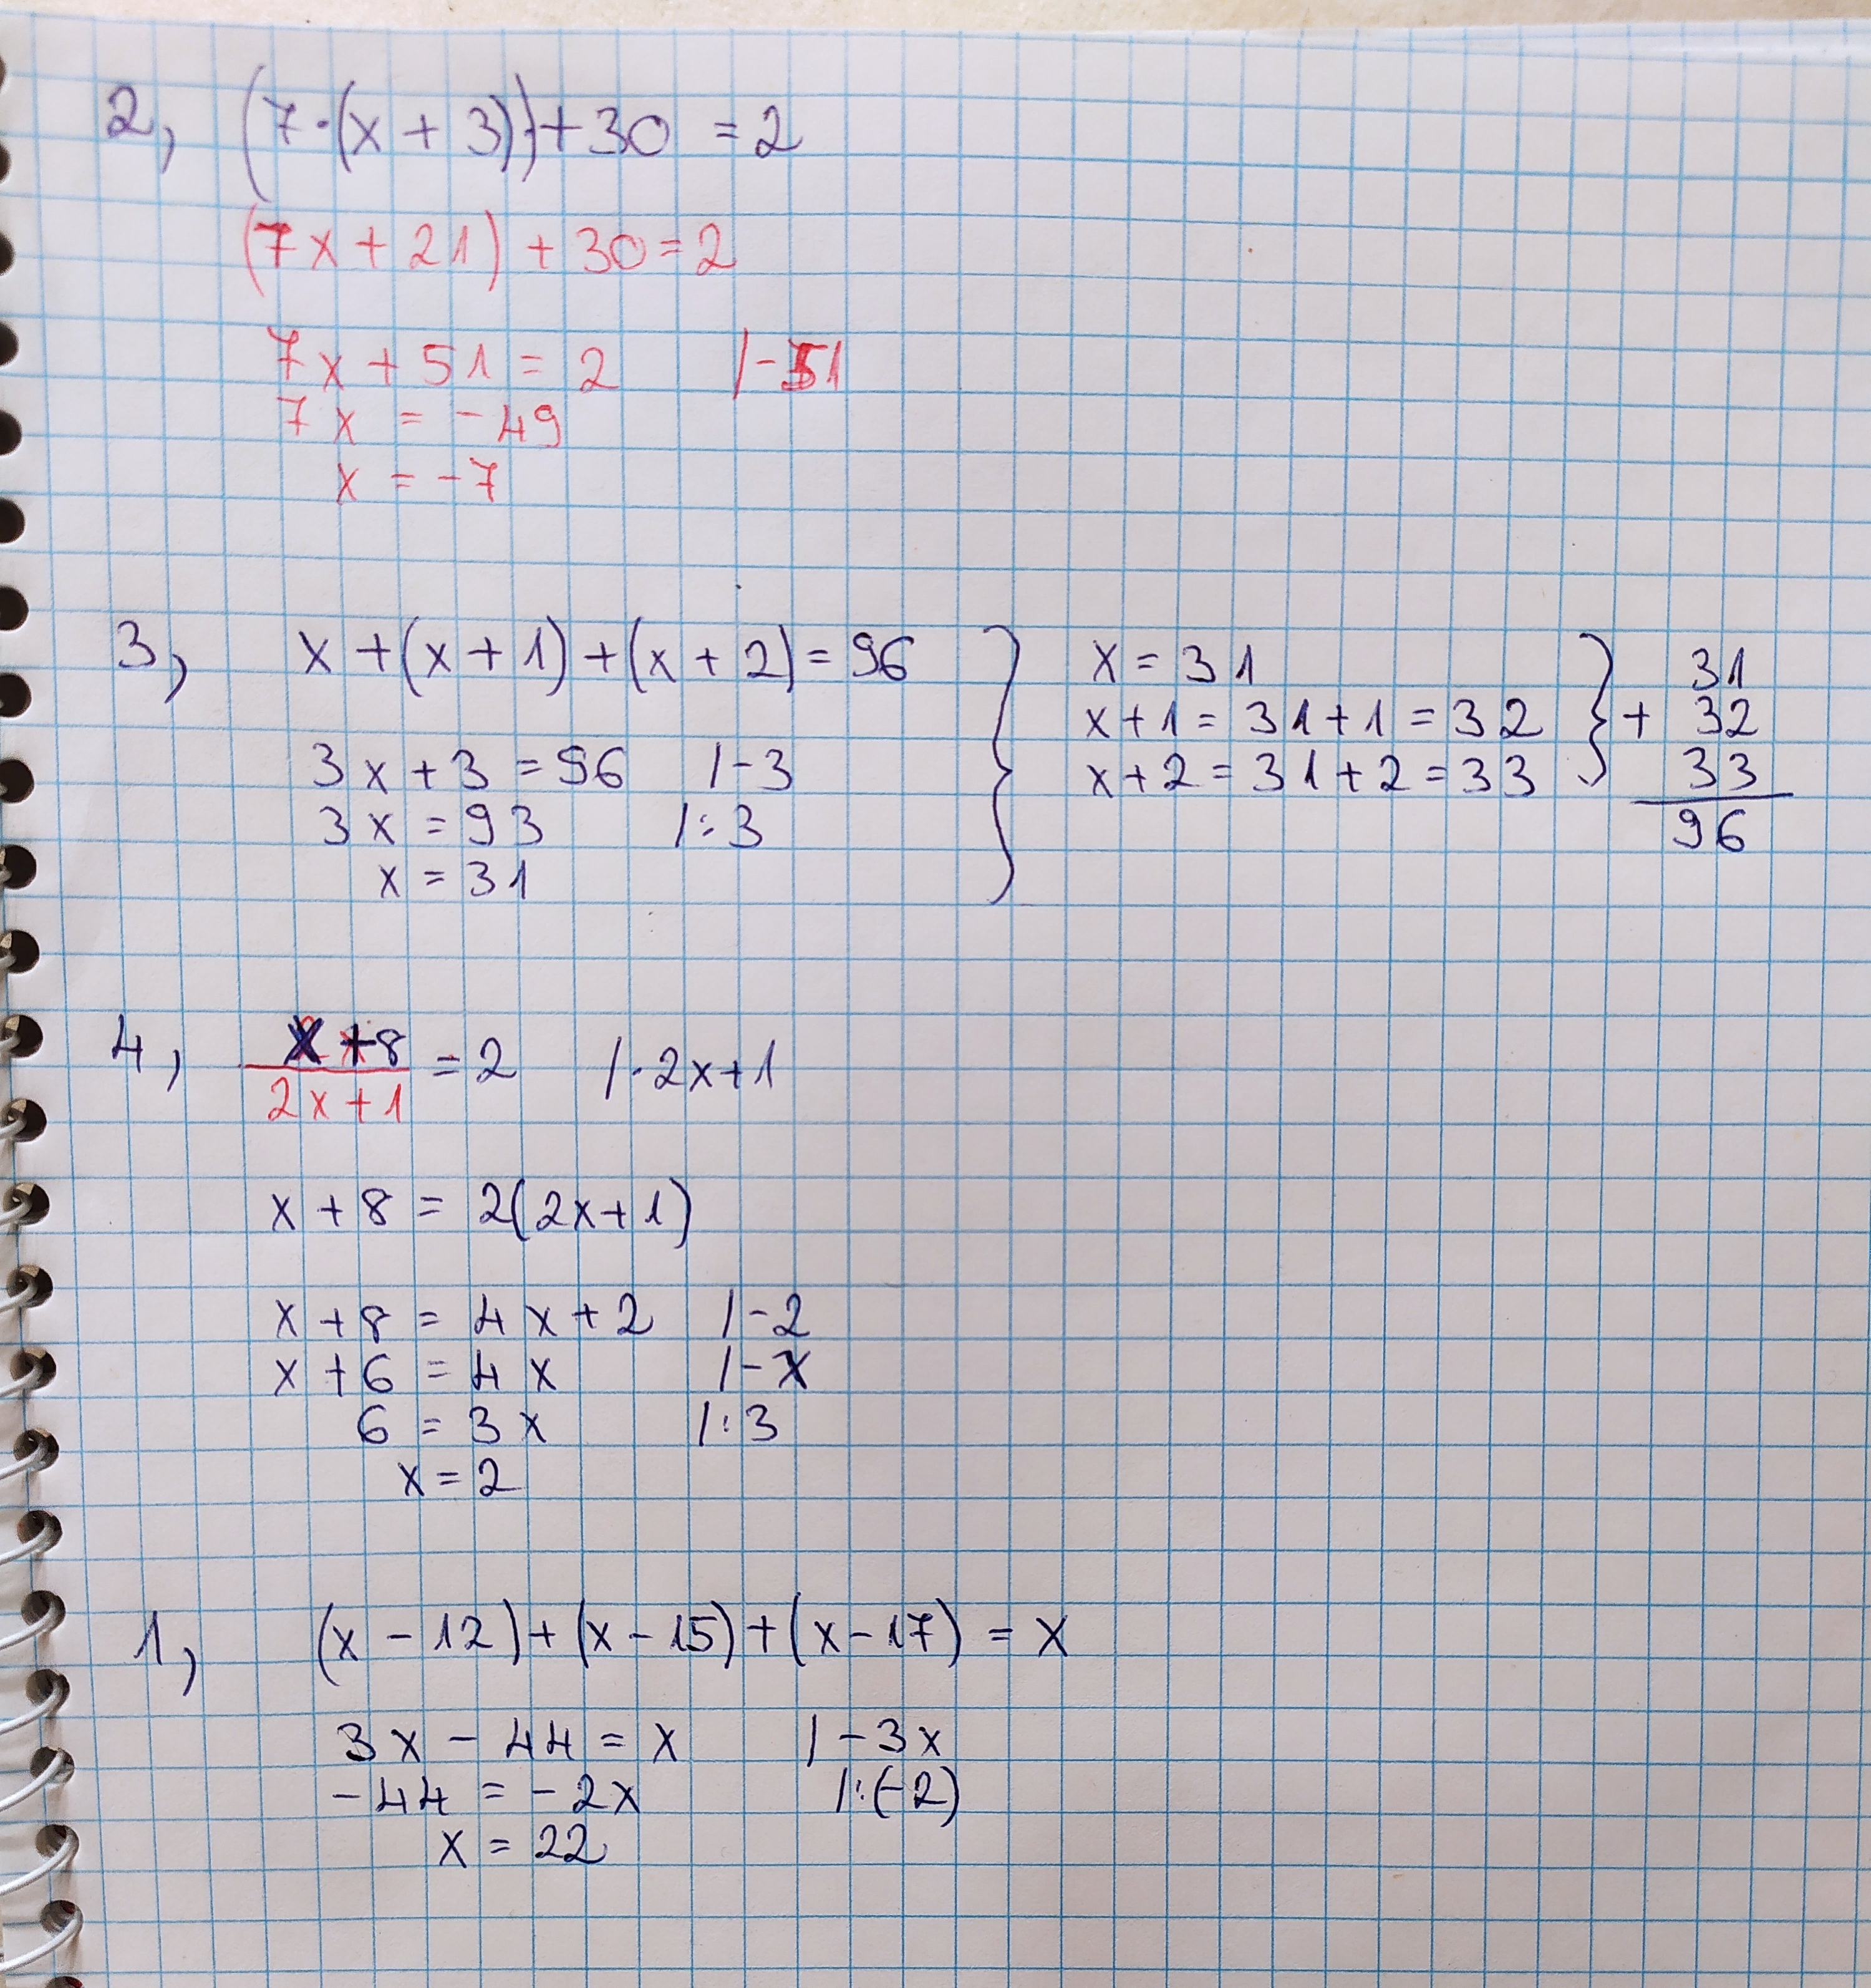 2, (7·(x + 3)) + 30 = 2
(7x + 21) + 30 = 2
7x + 51 = 2 /-51
7x = -49
x = -7
3, x + (x + 1) + (x + 2) = 96
3x + 3 = 96 /-3
3x = 93 /:3
x = 31
x = 31
x + 1 = 31 + 1 = 32
x + 2 = 31 + 2 = 33
31
+ 32
33
96
4, x + 8 / 2x + 1 = 2 /· 2x + 1
x + 8 = 2(2x + 1)
x + 8 = 4x + 2 /-2
x + 6 = 4x /-x
6 = 3x /:3
x = 2
1, (x - 12) + (x - 15) + (x - 17) = x
3x - 44 = x /-3x
-44 = -2x /:(-2)
x = 22